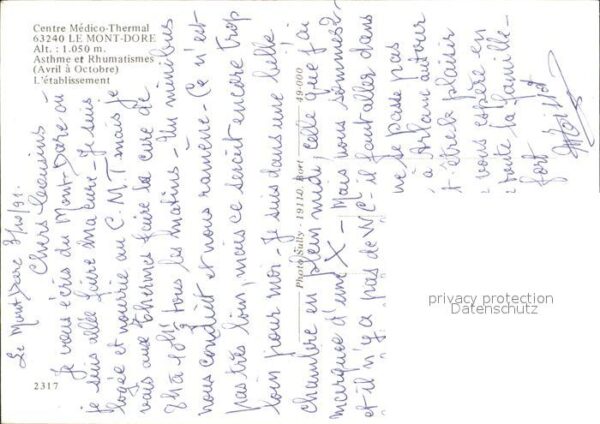 Centre Médico-Thermal
63240 LE MONT-DORE
Alt. : 1.050 m.
Asthme et Rhumatismes
(Avril à Octobre)
L'établissement
2317
Photo Sully - 19110. Bort - 49-000
Le Mont Dore
Chers Cousins
Je vous écris du Mont-Dore où
je suis allée faire ma cure - Je suis
logée et nourrie au C.M.T mais je
vais aux thermes faire la cure de
8h à 10h tous les matins - Un minibus
nous conduit et nous ramène - Ce n'est
pas très loin, mais ce serait encore trop
loin pour moi - Je suis dans une belle
chambre en plein midi, celle que j'ai
marquée d'une X - Mais nous sommes
et il n'y a pas de WC - il faut aller dans
ne se passe pas
à Arlanc autour
plaisir
vous espère en
toute la famille -
fort
privacy protection
Datenschutz